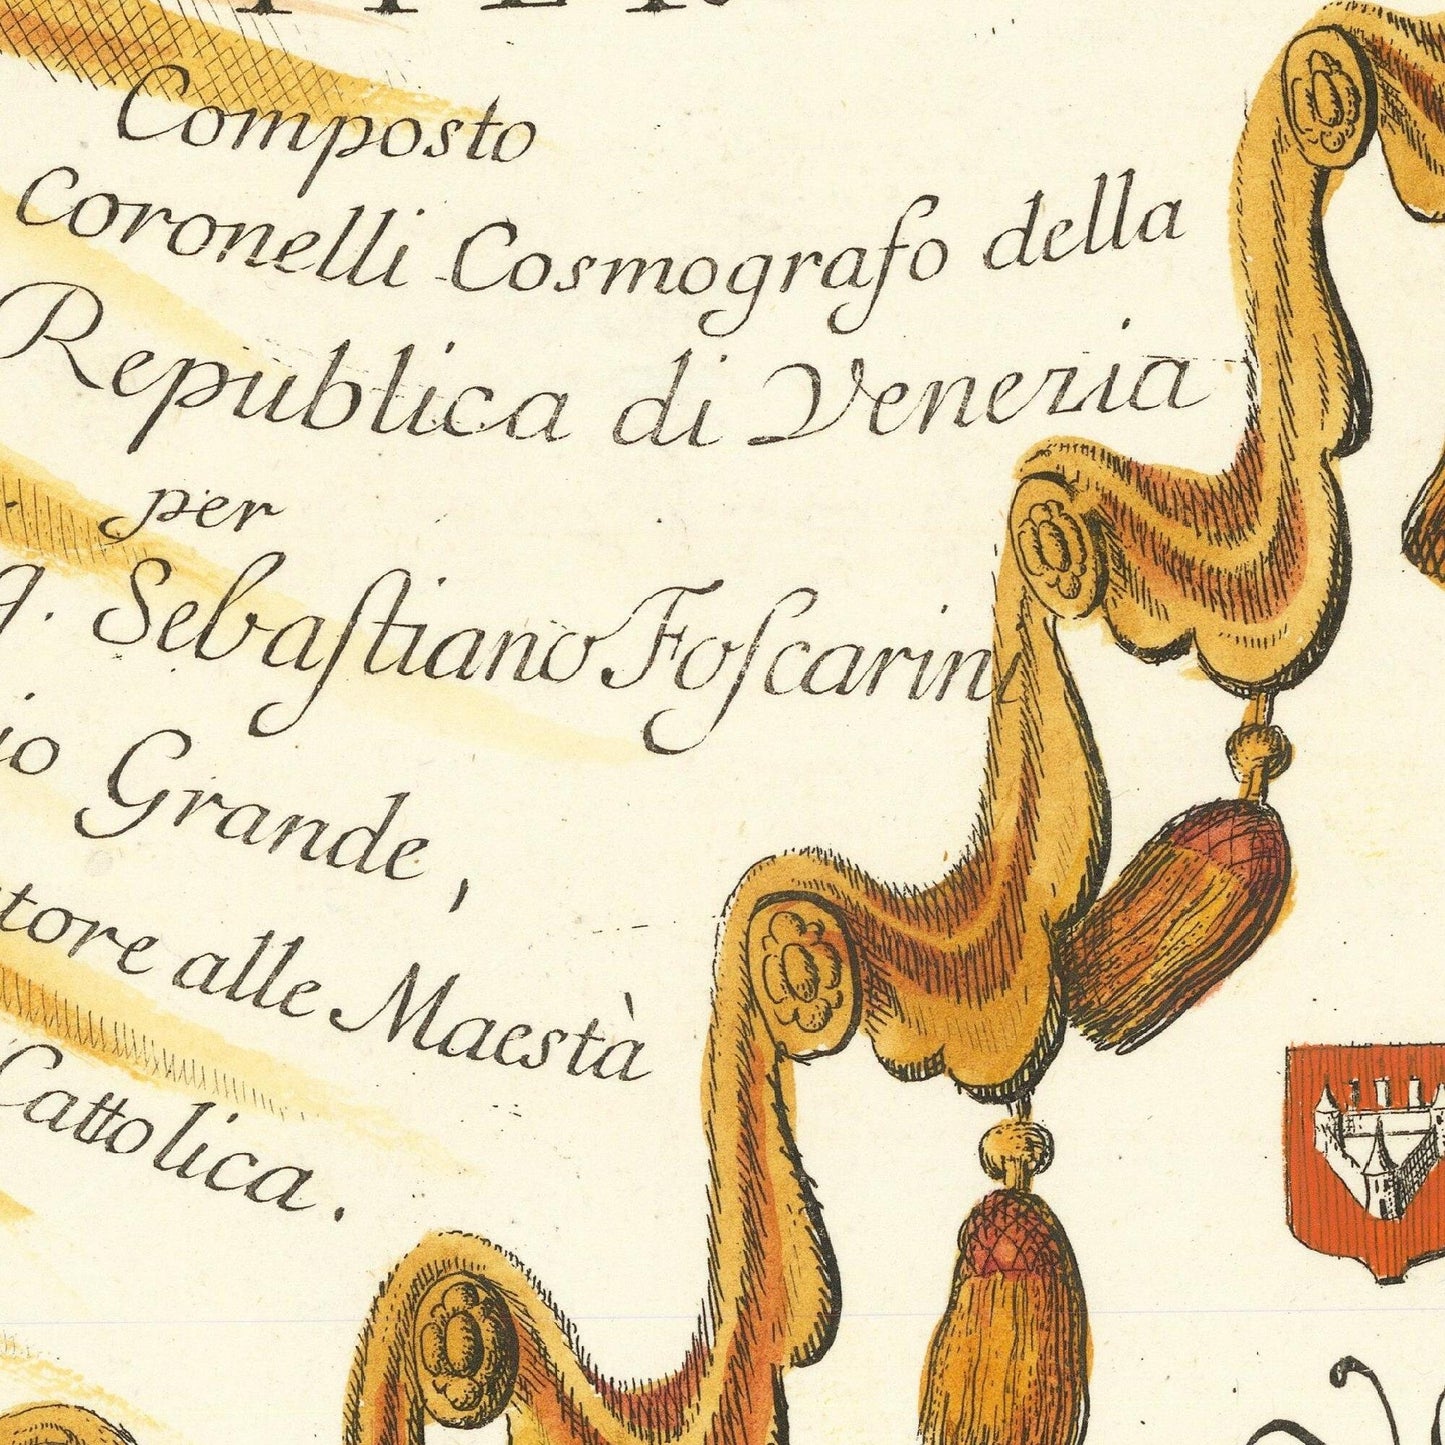 Composto
Coronelli Cosmografo della
Republica di Venezia
per
q. Sebaſtiano Foſcarini
io Grande,
tore alle Maestà
Cattolica.